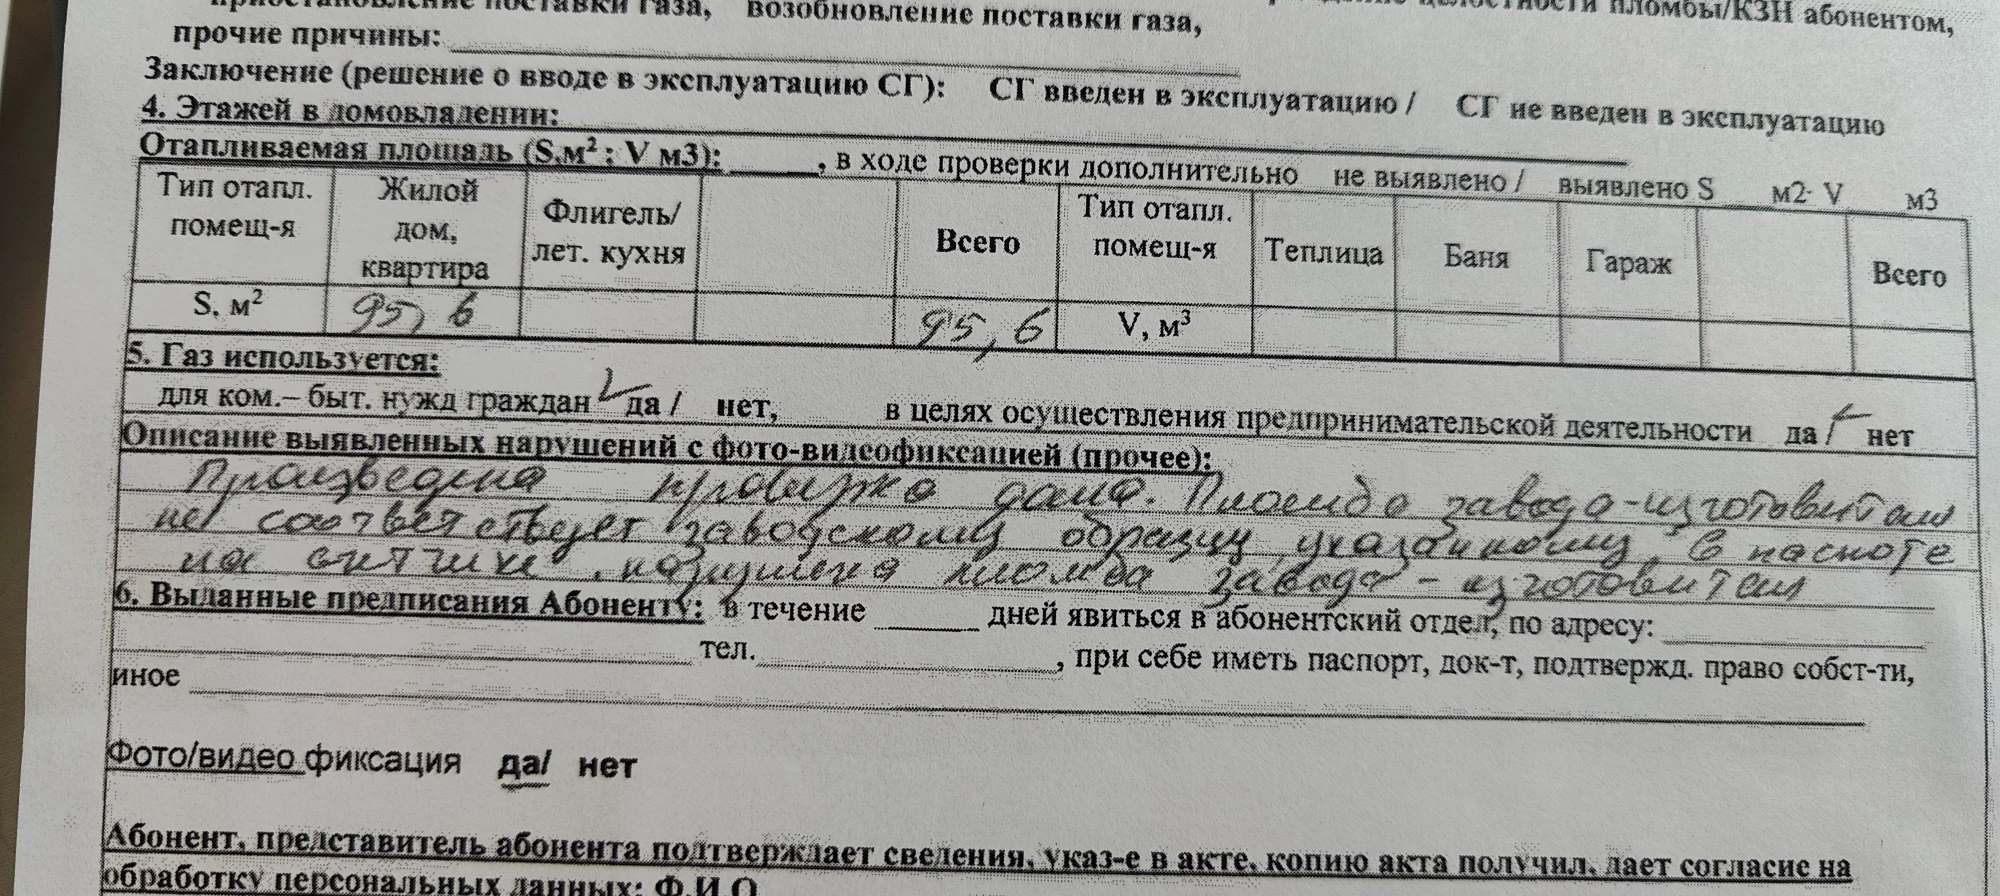 приостановление поставки газа, возобновление поставки газа, целостности пломбы/КЗН абонентом,
прочие причины:
Заключение (решение о вводе в эксплуатацию СГ): СГ введен в эксплуатацию / СГ не введен в эксплуатацию
4. Этажей в домовладении:
Отапливаемая площадь (S.м² ; V м3): , в ходе проверки дополнительно не выявлено / выявлено S м2· V м3
Тип отапл. помещ-я Жилой дом, квартира Флигель/ лет. кухня Всего Тип отапл. помещ-я Теплица Баня Гараж Всего
S. м² 95,6 95,6 V, м³
5. Газ используется:
для ком.– быт. нужд граждан да / нет, в целях осуществления предпринимательской деятельности да / нет
Описание выявленных нарушений с фото-видеофиксацией (прочее):
Произведена проверка дома. Пломба завода-изготовителя
не соответствует заводскому образцу, указанному в паспорте
на счетчик, нарушена пломба завода - изготовителя
6. Выданные предписания Абоненту: в течение дней явиться в абонентский отдел, по адресу:
тел. , при себе иметь паспорт, док-т, подтвержд. право собст-ти,
иное
Фото/видео фиксация да/ нет
Абонент, представитель абонента подтверждает сведения, указ-е в акте, копию акта получил, дает согласие на
обработку персональных данных: Ф.И.О.